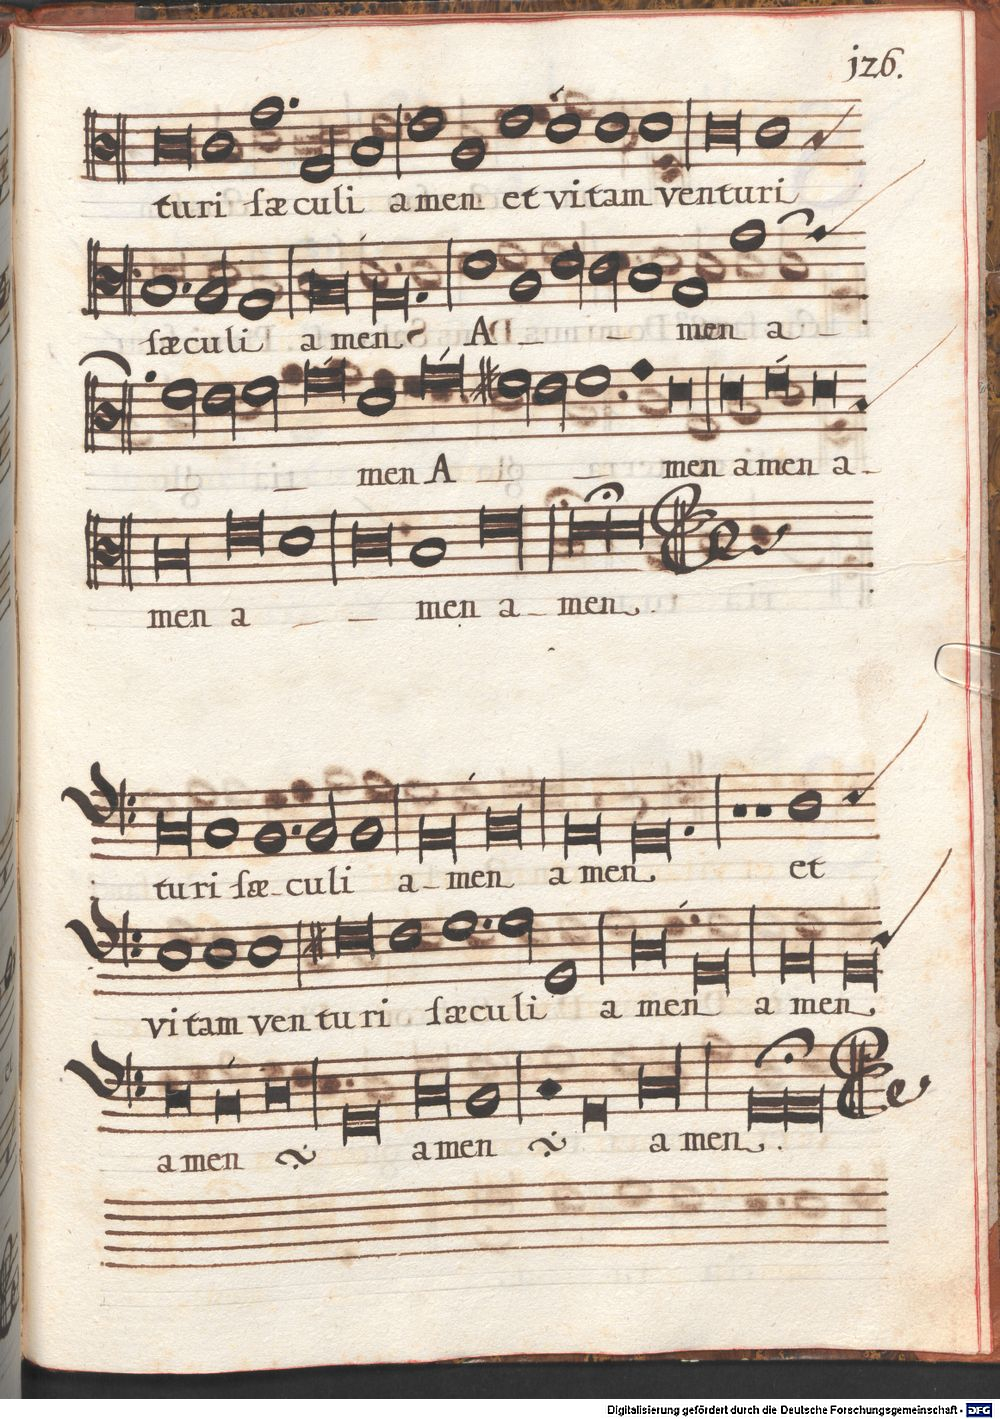 j26.
turi ſæculi amen et vitam venturi
ſæculi amen A _ _ men a _
_ _ men A _ _ men amen a _
men a _ _ men a _ men
turi ſæ _ culi a _ men a men. et
vitam venturi ſæculi a men a men.
amen amen a men.
Digitalisierung gefördert durch die Deutsche Forschungsgemeinschaft - DFG